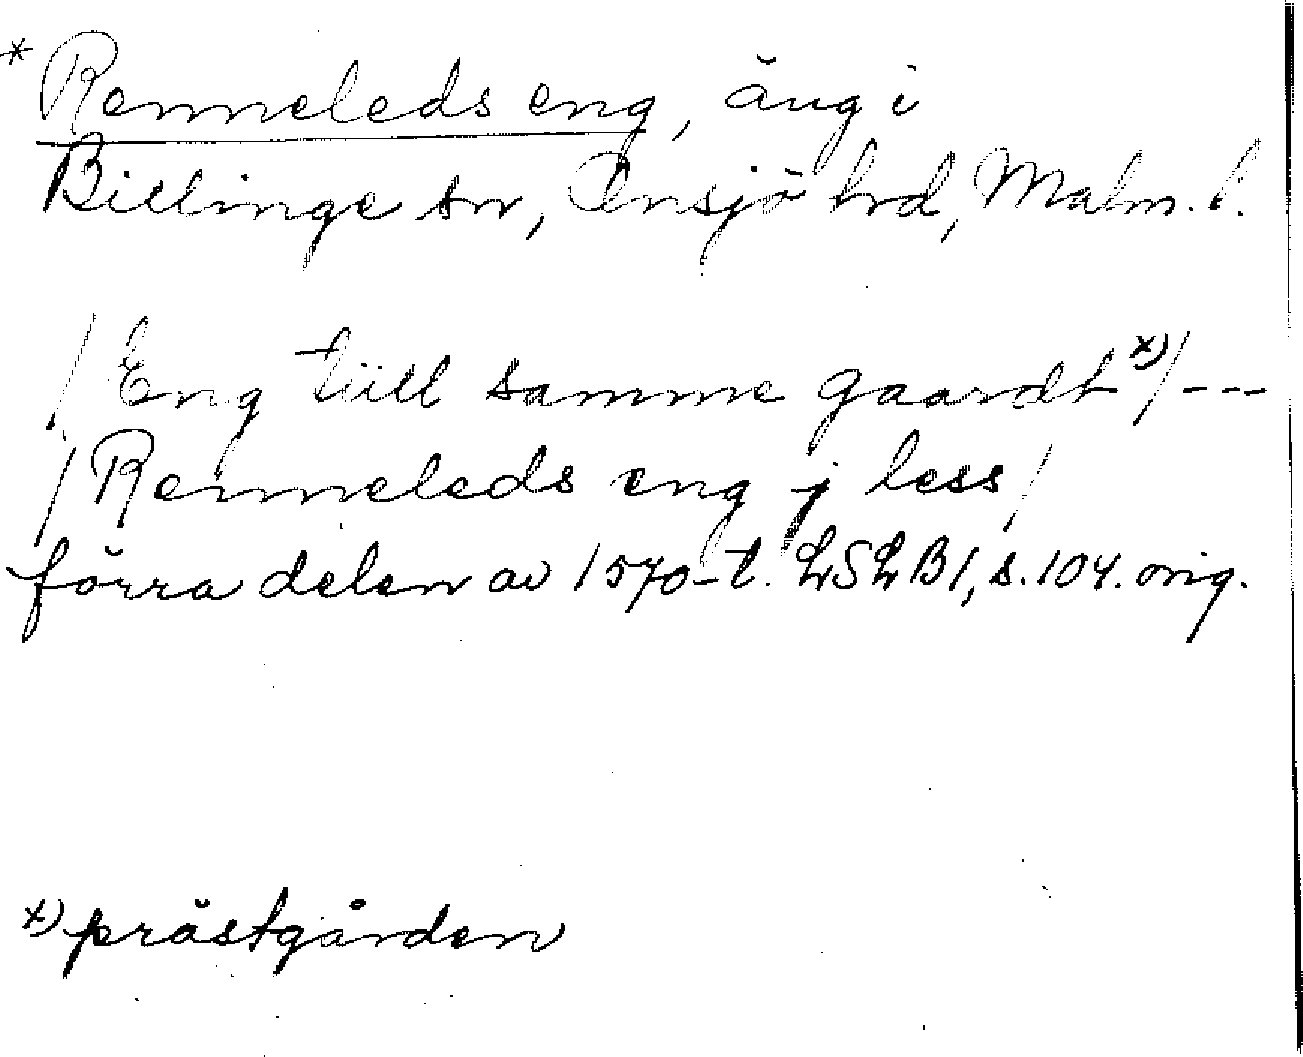 * Renneleds eng, äng i
Billinge sn, Onsjö hrd, Malm. l.
/Eng tiill samme gaardt x)/ ---
/Renneleds eng j less/
förra delen av 1570-t. LSLB1, s. 104. orig.
x) prästgården